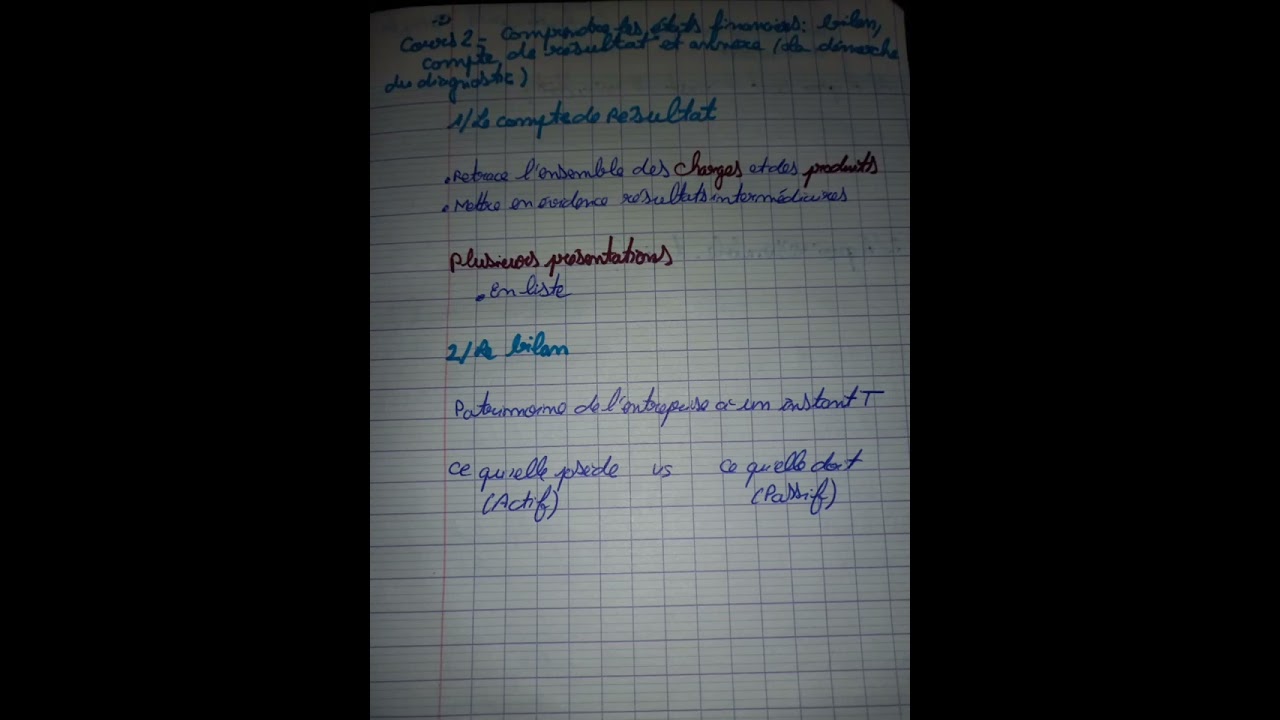 Cours 2 - Comprendre les états financiers: bilan,
compte de résultat et annexe (la démarche
du diagnostic)
1/ Le compte de Resultat
• Retrace l'ensemble des charges et des produits
• Mettre en évidence resultats intermédiaires
Plusieurs présentations
• en liste
2/ Le bilan
Patrimoine de l'entreprise à un instant T
ce qu'elle pséde vs ce qu'elle doit
(Actif) (Passif)